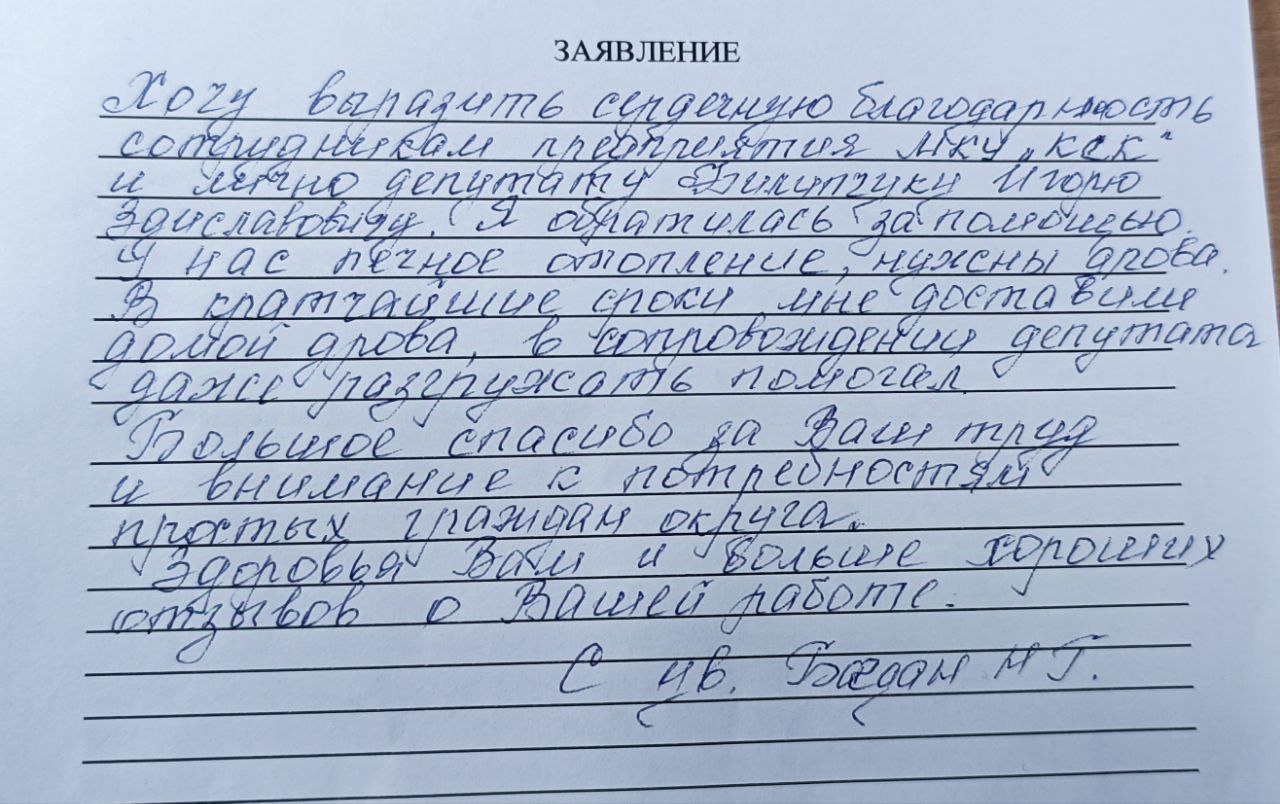 ЗАЯВЛЕНИЕ
Хочу выразить сердечную благодарность
сотрудникам предприятия МКУ „КСК"
и лично депутату Филипчуку Игорю
Здиславовичу. Я обратилась за помощью.
У нас печное отопление, нужны дрова.
В кратчайшие сроки мне доставили
домой дрова, в сопровождении депутата
даже разгружать помогал.
Большое спасибо за Ваш труд
и внимание к потребностям
простых граждан округа.
Здоровья Вам и больше хороших
отзывов о Вашей работе.
С ув. Богдан Н Г.